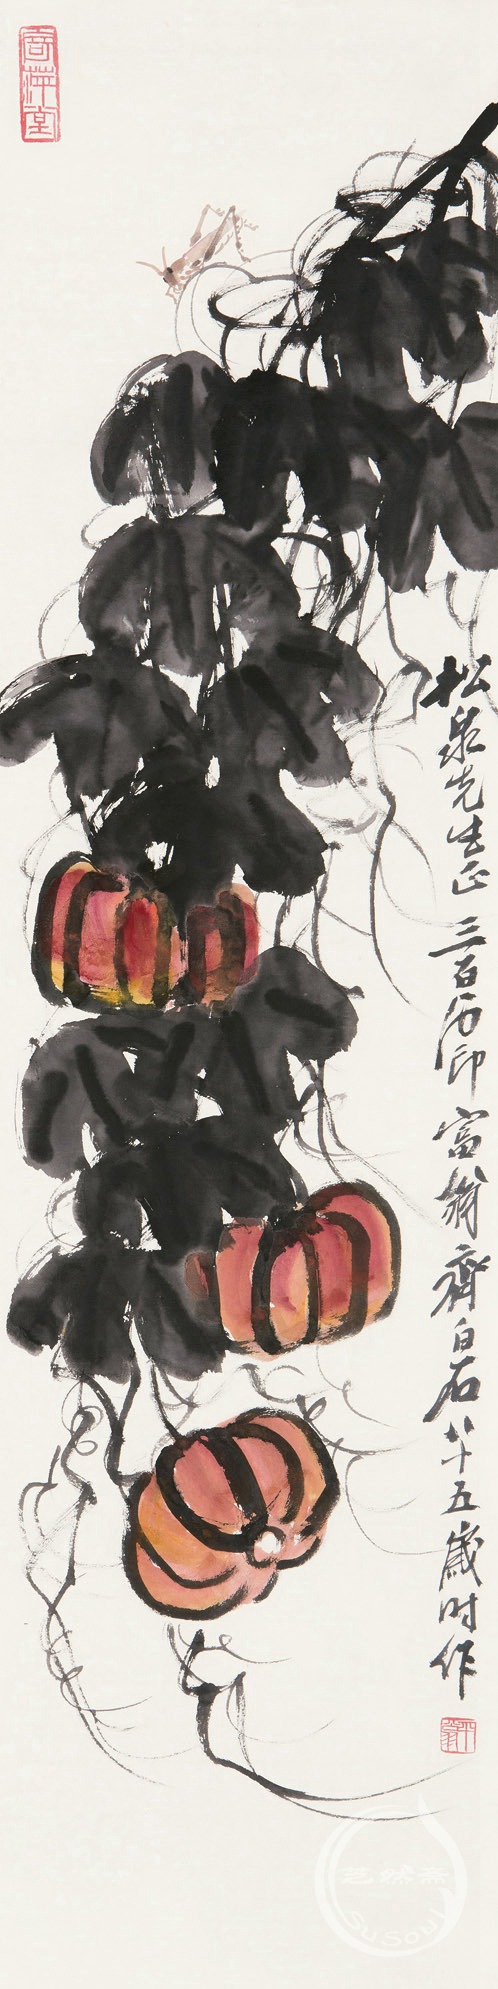 寄萍堂
松泉先生正 三百石印富翁齊白石八十五歲時作
艺然斋
SUSOUL